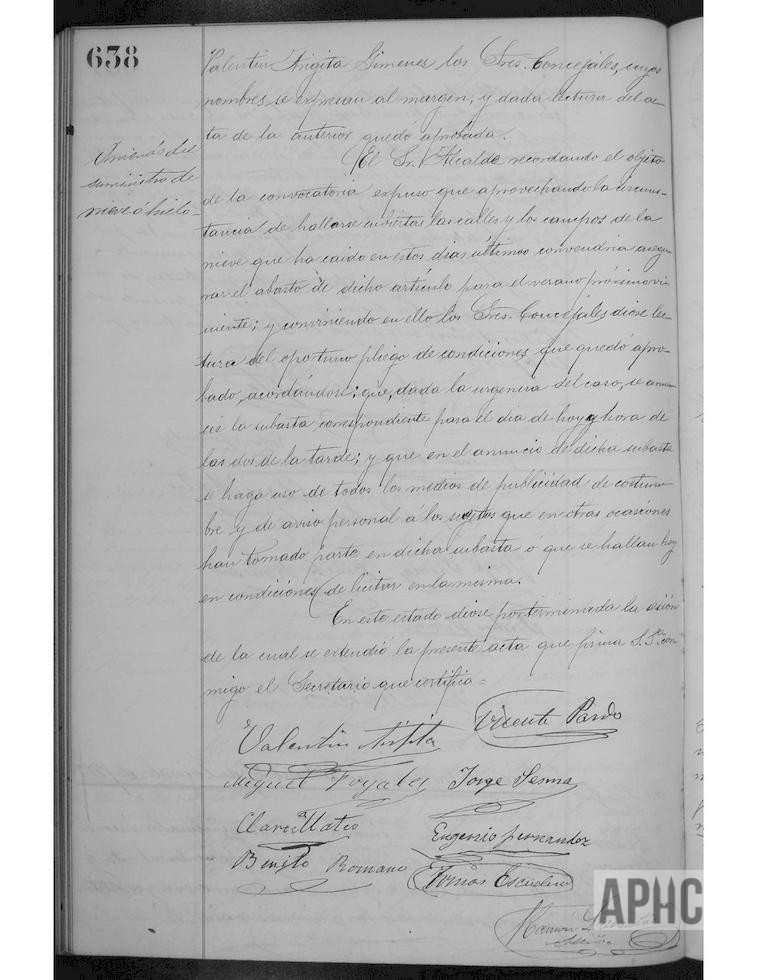 638
Valentin Arigita Jimenez los Sres. Concejales, cuyos
nombres se expresan al margen, y dada lectura del ac-
ta de la anterior quedó aprobada.
El Sr. Alcalde recordando el objeto
Anuncio del
suministro de
nieve ó hielo
de la convocatoria expuso que aprovechando la circuns-
tancia de hallarse cubiertas las calles y los campos de la
nieve que ha caido en estos dias últimos convendria asegu-
rar el abasto de dicho artículo para el verano próximo vi-
niente; y conviniendo en ello los Sres. Concejales dióse lec-
tura del oportuno pliego de condiciones que quedó apro-
bado, acordándose: que, dada la urgencia del caso, se anun-
cie la subasta correspondiente para el dia de hoy y hora de
las dos de la tarde; y que en el anuncio de dicha subasta
se haga uso de todos los medios de publicidad de costum-
bre y de aviso personal á los sugetos que en otras ocasiones
han tomado parte en dicha subasta ó que se hallan hoy
en condiciones de licitar en la misma.
En este estado dióse por terminada la sesión
de la cual se extendió la presente acta que firma S. Sª con
migo el Secretario que certifica =
Valentin Arigita
Vicente Pardo
Miguel
Jorge Serma
Claro Mateo
Eugenio fernandez
Benito Romano
Tomas Escudero
Ramón
APHC